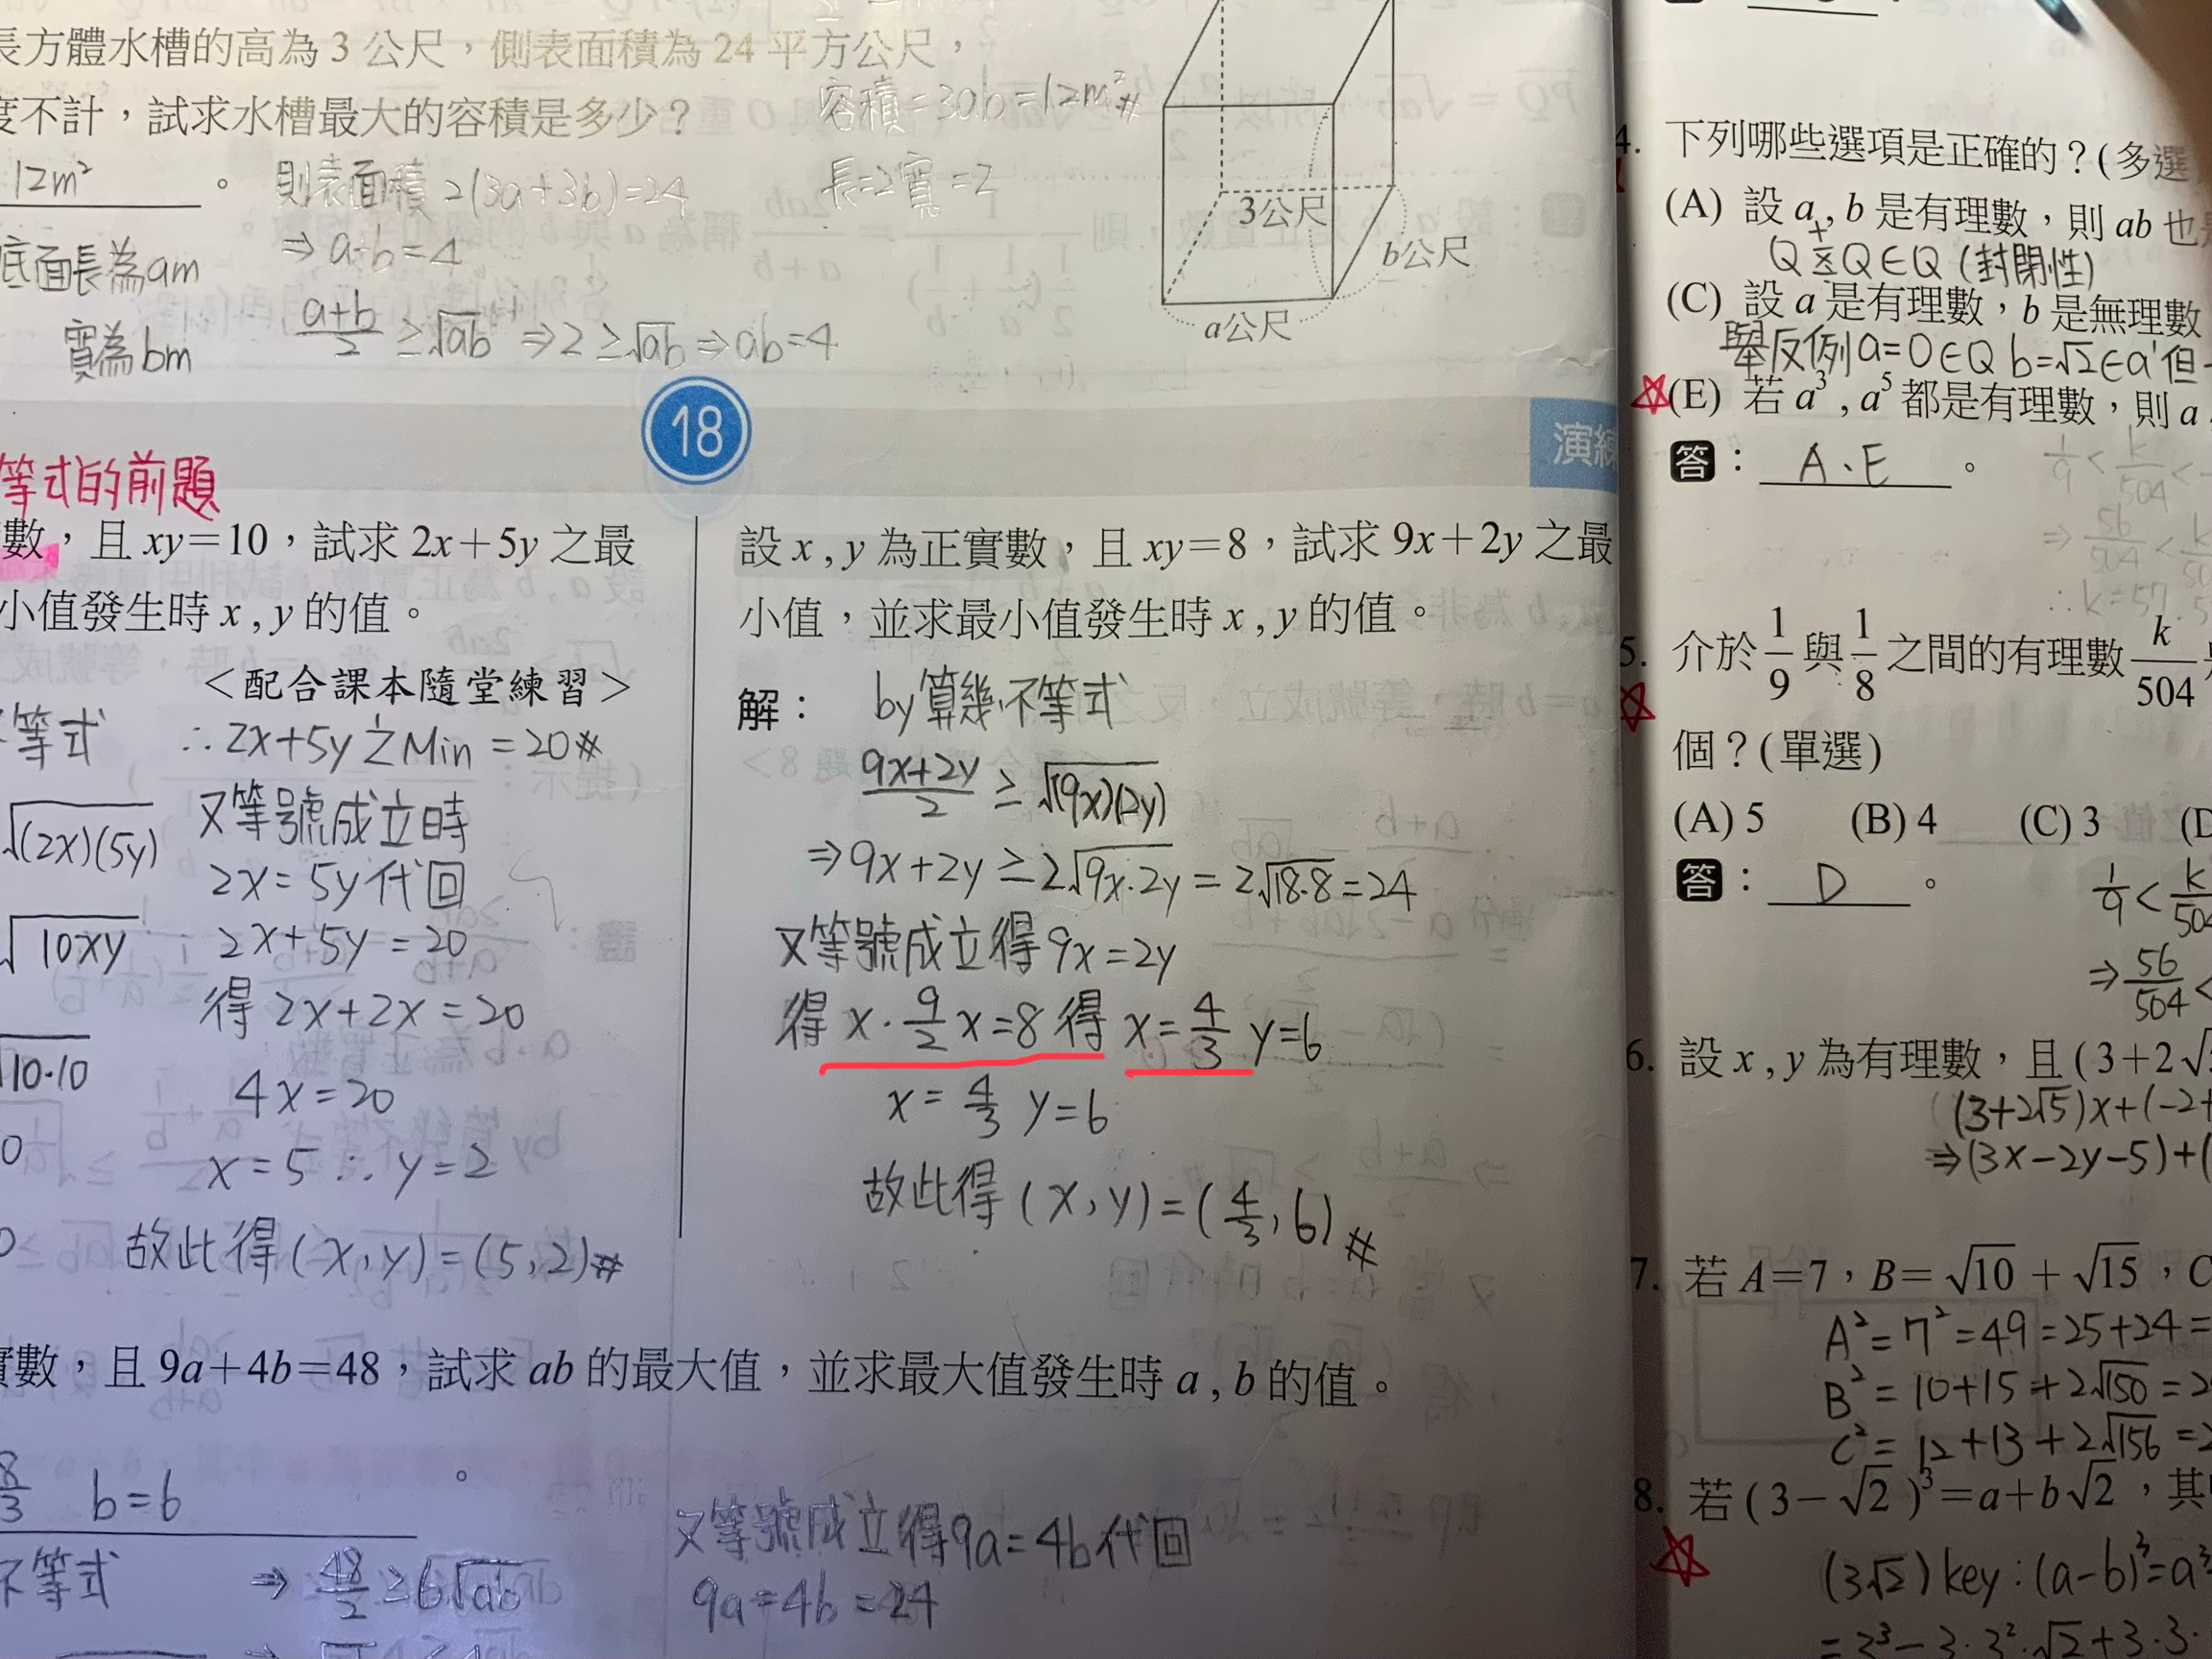 長方體水槽的高為3公尺，側表面積為24平方公尺，
度不計，試求水槽最大的容積是多少？
容積=3ab=12m²#
12m²。
則表面積 2(3a+3b)=24
長=2 寬=2
底面長為am
⇒a+b=4
寬為bm
(a+b)/2≥√ab ⇒2≥√ab⇒ab=4
3公尺
b公尺
a公尺
18
演練
等式的前題
數，且xy=10，試求2x+5y之最
小值發生時x,y的值。
<配合課本隨堂練習>
不等式
∴2x+5y之Min=20#
√(2x)(5y)
又等號成立時
2x=5y代回
√10xy
2x+5y=20
得2x+2x=20
√10·10
4x=20
0
x=5 ∴y=2
故此得(x,y)=(5,2)#
設x,y為正實數，且xy=8，試求9x+2y之最
小值，並求最小值發生時x,y的值。
解：
by算幾不等式
(9x+2y)/2≥√(9x)(2y)
⇒9x+2y≥2√9x·2y=2√18·8=24
又等號成立得9x=2y
得x·9/2x=8得x=4/3 y=6
x=4/3 y=6
故此得(x,y)=(4/3,6)#
實數，且9a+4b=48，試求ab的最大值，並求最大值發生時a,b的值。
8/3 b=6
。
不等式
⇒48/2≥6√ab
又等號成立得9a=4b代回
9a=4b=24
4. 下列哪些選項是正確的？(多選
(A) 設a,b是有理數，則ab也
(封閉性)
(C) 設a是有理數，b是無理數
舉反例a=0∈Q b=√2∈Q'但
(E) 若a³,a⁵都是有理數，則a
答：A、E。
1/9<k/504<
⇒56/504<
∴k=57
5. 介於1/9與1/8之間的有理數k/504
個？(單選)
(A) 5 (B) 4 (C) 3 (D
答：D。
1/9<k/504
⇒56/504<
6. 設x,y為有理數，且(3+2√
(3+2√5)x+(-2+
⇒(3x-2y-5)+(
7. 若A=7，B=√10+√15，C
A²=7²=49=25+24=
B²=10+15+2√150=2
C²=12+13+2√156=2
8. 若(3-√2)³=a+b√2，其
(3√2) key:(a-b)³=a³
=3³-3·3²·√2+3·3·